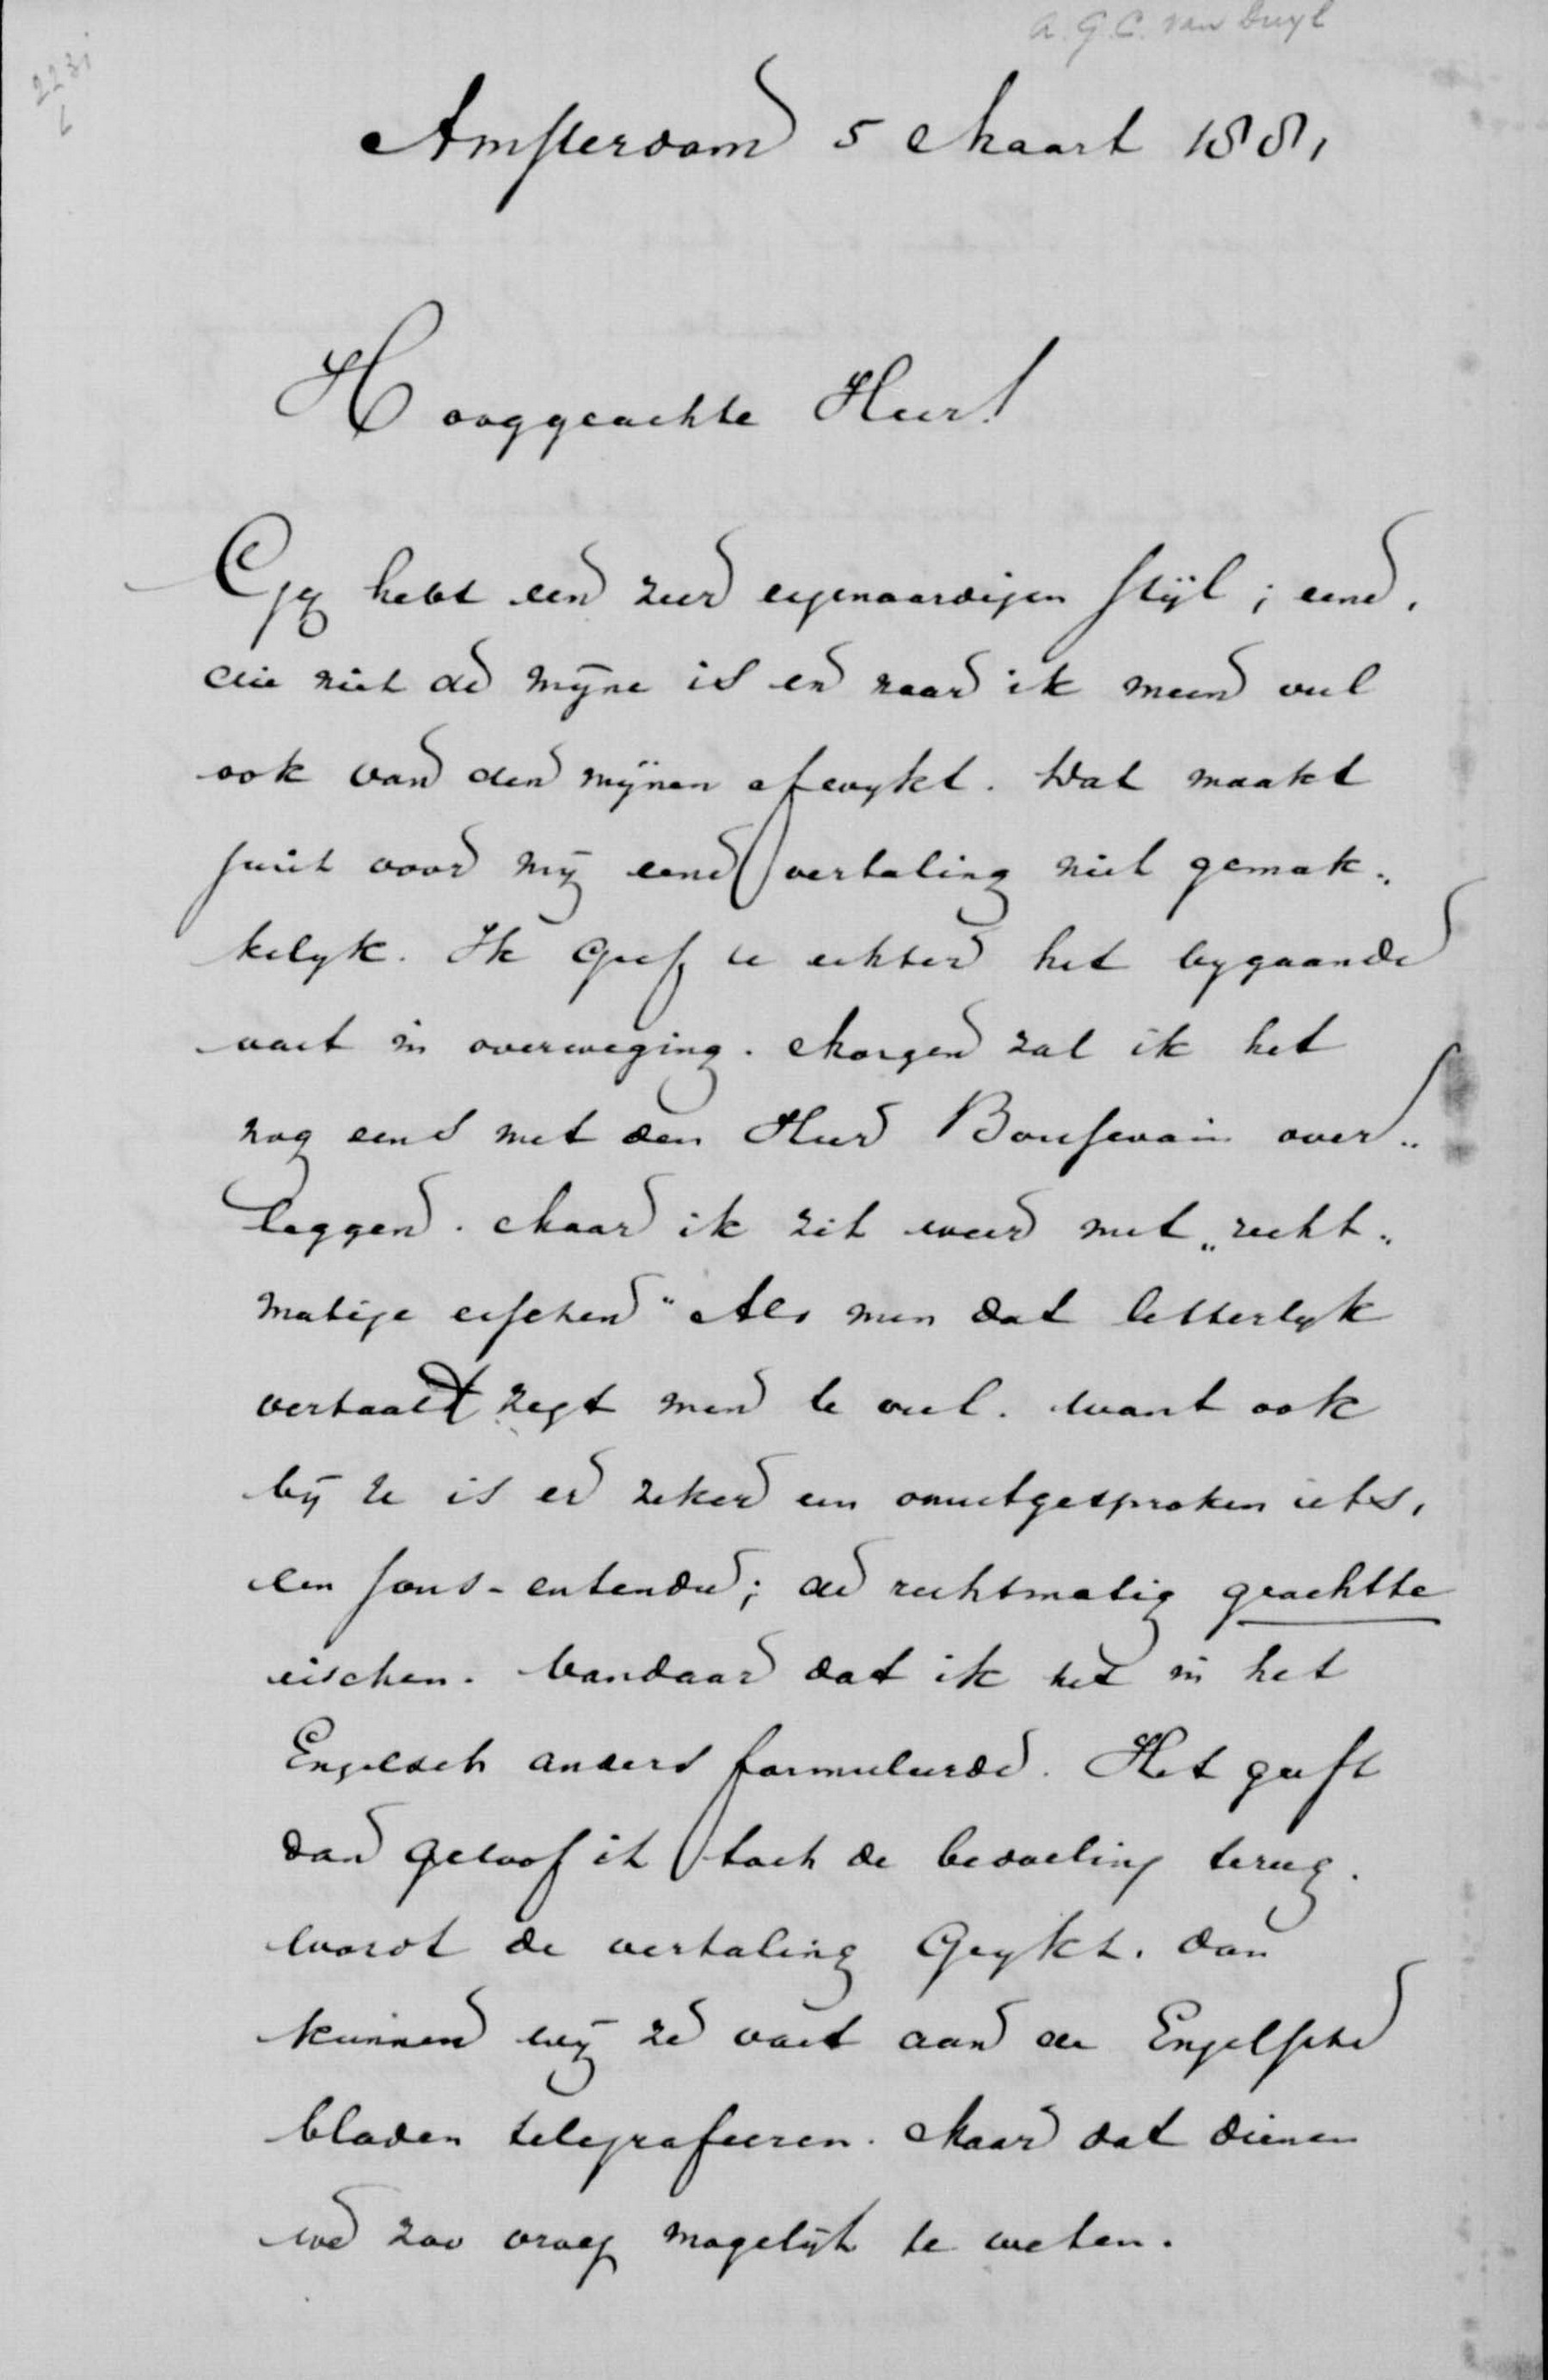 A. G. C. van Duyl
2231
L
Amsterdam 5 Maart 1881
Hooggeachte Heer!
Gy hebt een zeer eigenaardigen stijl; eene,
die niet de mijne is en naar ik meen veel
ook van den mijnen afwykt. Dat maakt
juist voor mij eene vertaling niet gemak„
kelyk. Ik geef u echter het bygaande
vast in overweging. Morgen zal ik het
nog eens met den Heer Boissevain over„
leggen. Maar ik zit weer met „recht„
matige eischen" Als men dat letterlyk
vertaalt zegt men te veel. want ook
bij U is er zeker een onuitgesproken iets,
een sous-entendu; de rechtmatig geachtte
eischen. Vandaar dat ik het in het
Engelsch anders formuleerde. Het geeft
dan geloof ik toch de bedoeling terug.
Wordt de vertaling geykt, dan
kunnen wij ze vast aan de Engelsche
bladen telegrafeeren. Maar dat dienen
we zoo vroeg mogelijk te weten.